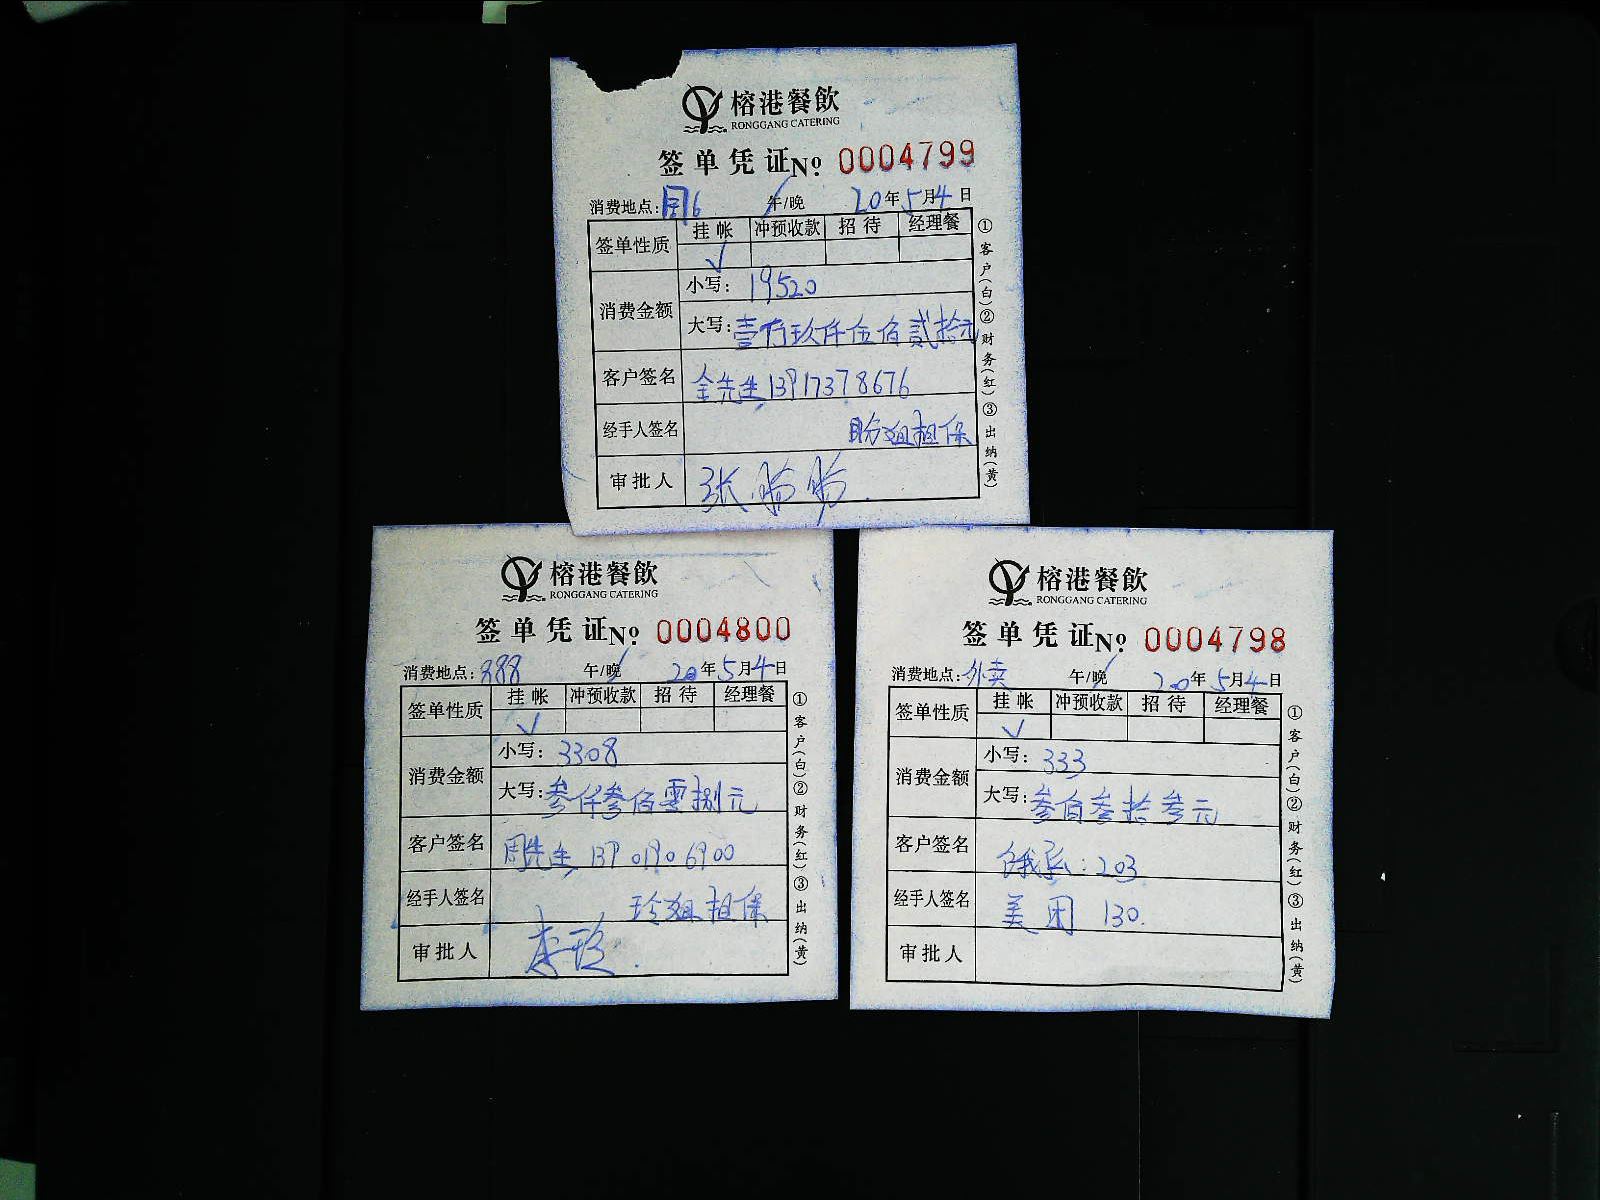 榕港餐飲
RONGGANG CATERING
签单凭证 No. 0004799
消费地点: 午/晚 20年5月4日
签单性质 挂帐 冲预收款 招待 经理餐
√
消费金额 小写: 19520
大写: 壹仟玖仟伍佰贰拾元
客户签名 金先生 13917378676
经手人签名 盼姐担保
审批人 张盼盼
①客户(白)②财务(红)③出纳(黄)
榕港餐飲
RONGGANG CATERING
签单凭证 No. 0004800
消费地点: 888 午/晚 20年5月4日
签单性质 挂帐 冲预收款 招待 经理餐
√
消费金额 小写: 3308
大写: 叁仟叁佰零捌元
客户签名 周先生 13901906900
经手人签名 玲姐担保
审批人 李玲
①客户(白)②财务(红)③出纳(黄)
榕港餐飲
RONGGANG CATERING
签单凭证 No. 0004798
消费地点: 外卖 午/晚 20年5月4日
签单性质 挂帐 冲预收款 招待 经理餐
√
消费金额 小写: 333
大写: 叁佰叁拾叁元
客户签名 饿系: 203
经手人签名 美团 130.
审批人
①客户(白)②财务(红)③出纳(黄)